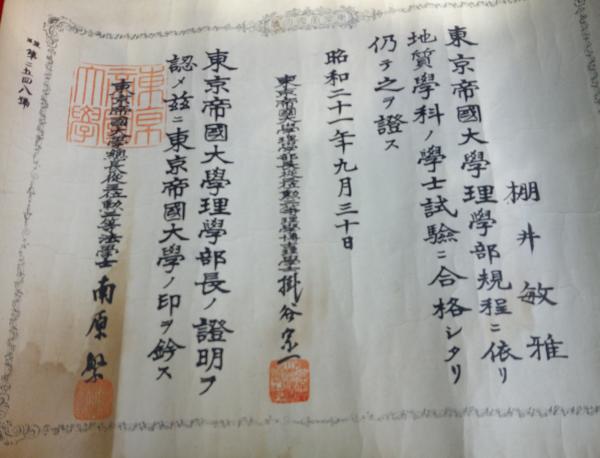 棚井敏雅
東京帝國大學理學部規程ニ依リ
地質學科ノ學士試驗ニ合格シタリ
仍テ之ヲ證ス
昭和二十一年九月三十日
東京帝國大學理學部長從三位勳二等理學博士 掛谷宗一
東京帝國大學理學部長ノ證明ヲ
認メ玆ニ東京帝國大學ノ印ヲ鈐ス
東京帝國大學總長從三位勳三等法學士 南原繁
第二五四八號